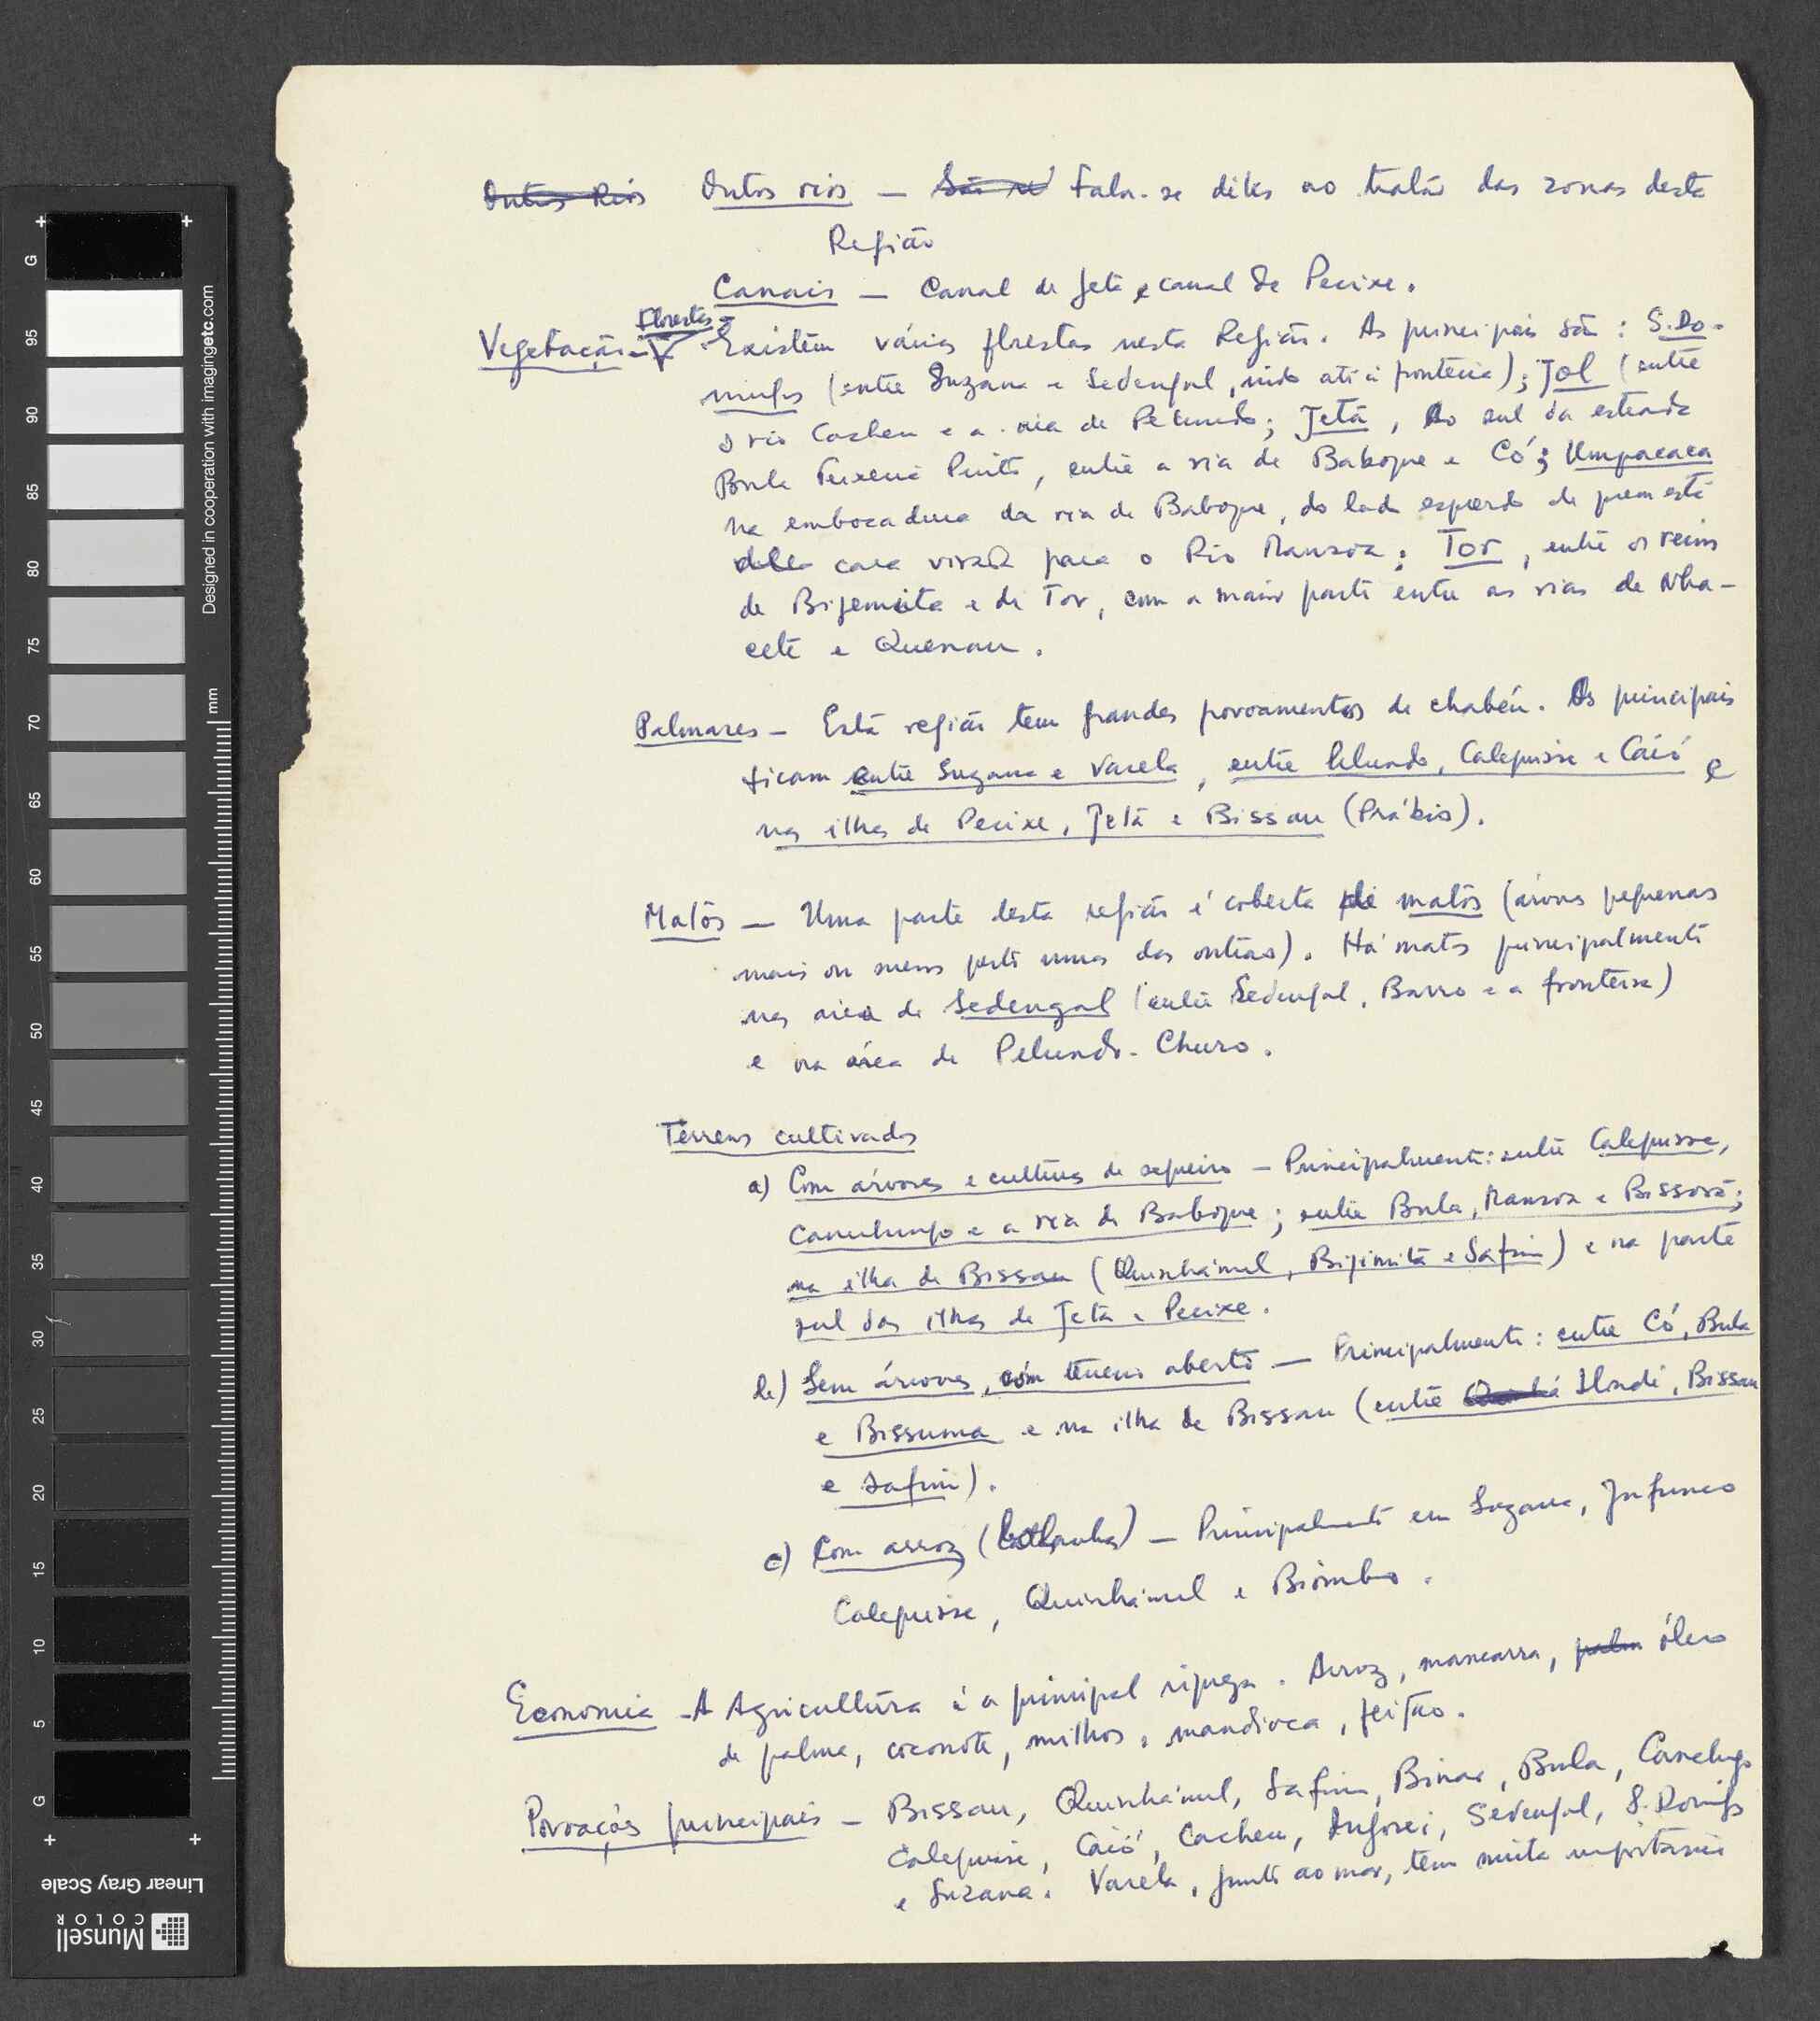 Outros Rios Outros rios — São re Fala-se deles ao tratar das zonas desta
Região
Canais — Canal de Jeta e canal de Pecixe.
Florestas -
Vegetação - Existem várias florestas nesta Região. As principais são: S. Do-
mingos (entre Suzana e Sedengal, indo até à fronteira); Jol (entre
o rio Cacheu e a ria de Pelundo; Jetá, ao sul da estrada
Bula Teixeira Pinto, entre a ria de Baboque e Có; Umpacaca
na embocadura da ria de Baboque, do lado esquerdo de quem está
cara virada para o Rio Mansoa; Tor, entre os reinos
de Bijemita e de Tor, com a maior parte entre as rias de Nha-
cete e Quenau.
Palmares - Esta região tem grandes povoamentos de chabéu. Os principais
ficam entre Suzana e Varela, entre Pelundo, Calequisse e Caió e
nas ilhas de Pecixe, Jetá e Bissau (Prábis).
Matos — Uma parte desta região é coberta de matos (árvores pequenas
mais ou menos perto umas das outras). Há matos principalmente
na área de Sedengal (entre Sedengal, Barro e a fronteira)
e na área de Pelundo - Churo.
Terrenos cultivados
a) Com árvores e culturas de sequeiro — Principalmente: entre Calequisse,
Canchungo e a ria de Baboque; entre Bula, Mansoa e Bissorã;
na ilha de Bissau (Quinhámel, Bijimita e Safim) e na parte
sul das ilhas de Jeta e Pecixe.
b) Sem árvores, com terreno aberto — Principalmente: entre Có, Bula
e Bissuma e na ilha de Bissau (entre Ilondé, Bissau
e Safim).
c) Com arroz (bolanhas) — Principalmente em Suzana, Jufunco
Calequisse, Quinhámel e Biombo.
Economia - A Agricultura é a principal riqueza. Arroz, mancarra, palm óleo
de palma, coconote, milhos, mandioca, feijão.
Povoações principais — Bissau, Quinhámel, Safim, Binar, Bula, Canchungo
Calequisse, Caió, Cacheu, Ingorei, Sedengal, S. Domingos
e Suzana. Varela, junto ao mar, tem muita importância
Designed in cooperation with imagingetc.com
mm
G
95
90
85
80
75
70
65
60
55
50
45
40
35
30
25
20
15
10
5
G
Linear Gray Scale
Munsell
COLOR